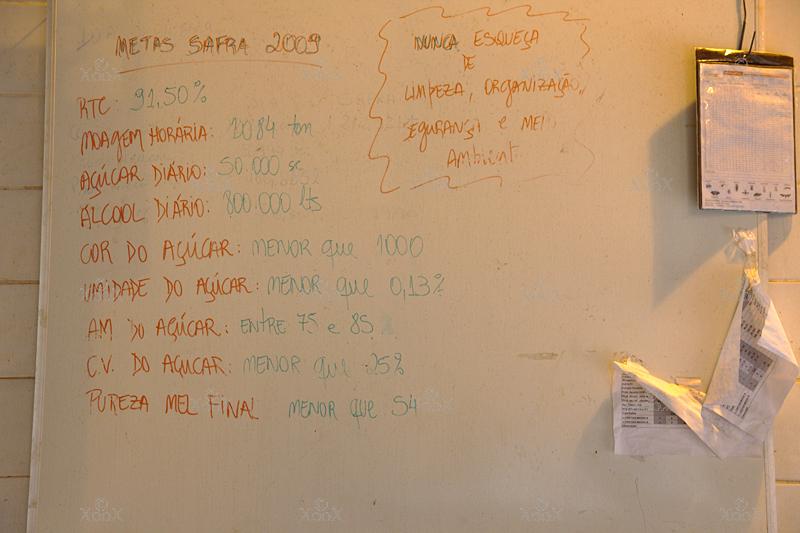 METAS SAFRA 2009
RTC: 91,50%
MOAGEM HORÁRIA: 1084 ton
AÇÚCAR DIÁRIO: 50.000 sc
ÁLCOOL DIÁRIO: 800.000 lts
COR DO AÇÚCAR: MENOR que 1000
UMIDADE DO AÇÚCAR: MENOR que 0,13%
AM DO AÇÚCAR: ENTRE 75 e 85
C.V. DO AÇUCAR: MENOR que 25%
PUREZA MEL FINAL MENOR que 54
NUNCA ESQUEÇA
DE
LIMPEZA, ORGANIZAÇÃO,
SEGURANÇA e MEI
Ambient